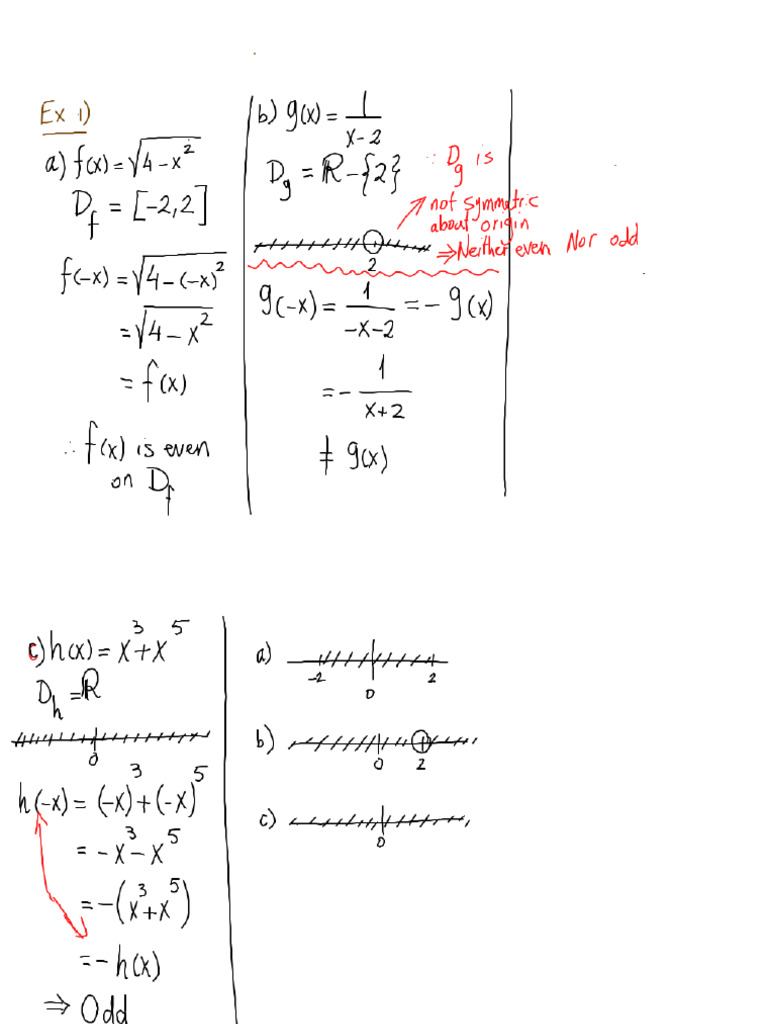 Ex 1)
a) f(x) = √(4 - x²)
D_f = [-2, 2]
f(-x) = √(4 - (-x)²)
= √(4 - x²)
= f(x)
∴ f(x) is even
on D_f
b) g(x) = 1/(x - 2)
D_g = ℝ - {2}
∵ D_g is
not symmetric
about origin
⇒ Neither even Nor odd
2
g(-x) = 1/(-x - 2) = - g(x)
= - 1/(x + 2)
≠ g(x)
c) h(x) = x³ + x⁵
D_h = ℝ
0
h(-x) = (-x)³ + (-x)⁵
= -x³ - x⁵
= -(x³ + x⁵)
= -h(x)
⇒ Odd
a)
-2 0 2
b)
0 2
c)
0